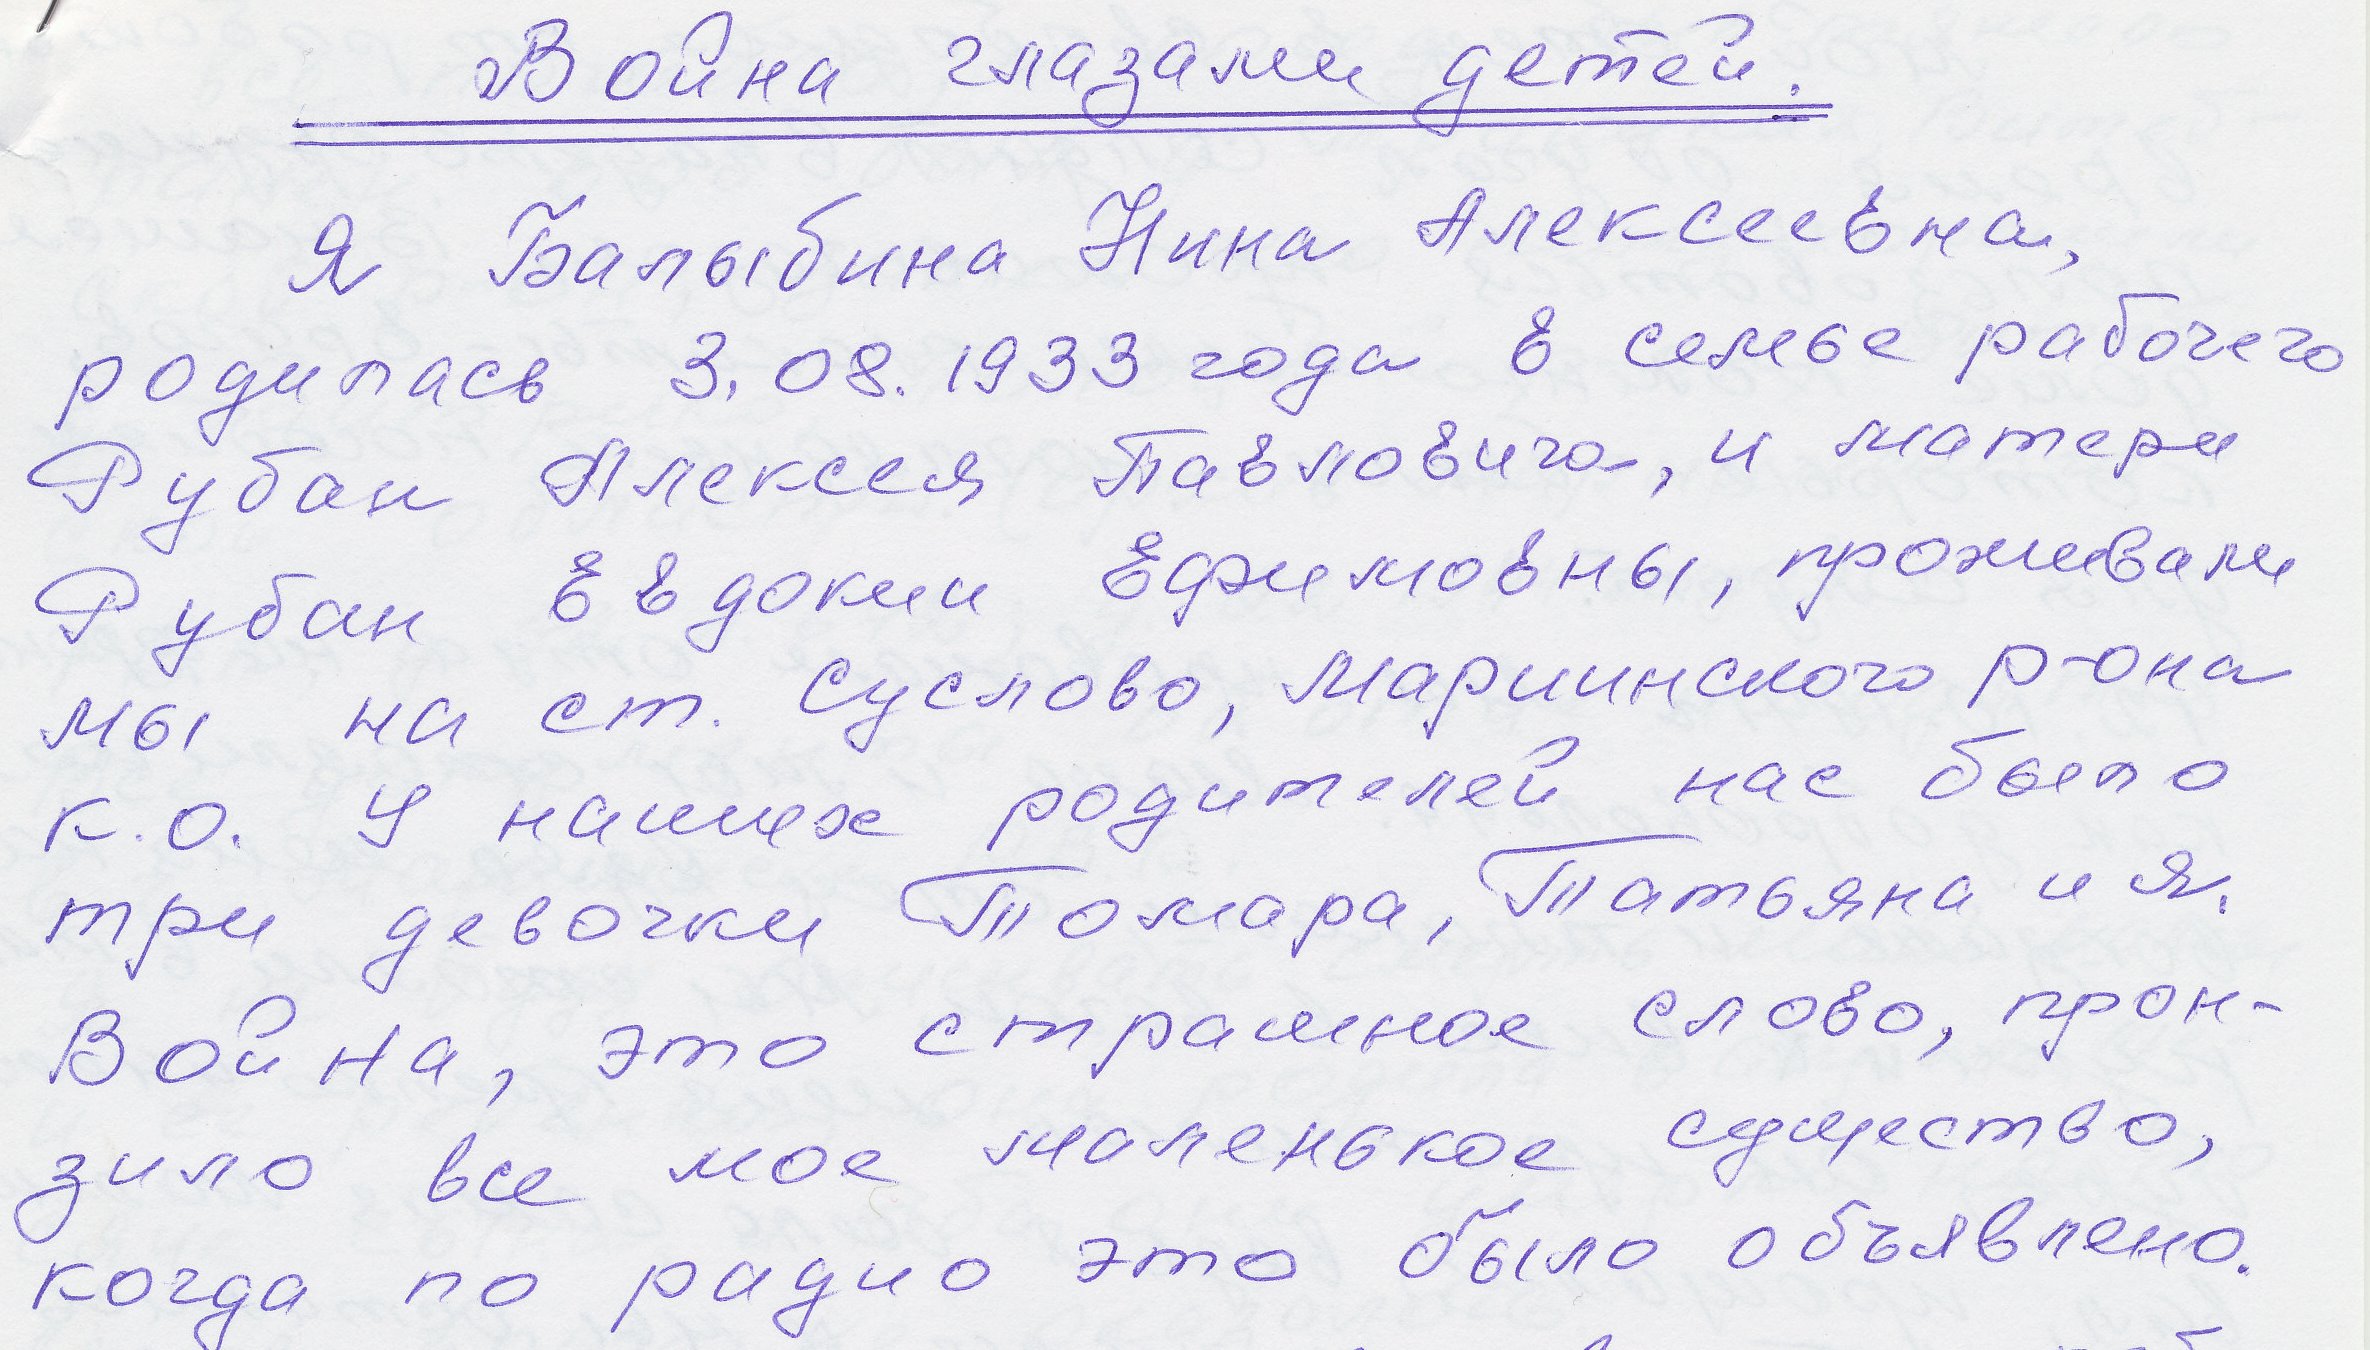 Война глазами детей.
Я Балыбина Нина Алексеевна,
родилась 3.08.1933 года в семье рабочего
Рубан Алексея Павловича, и матери
Рубан Евдокии Ефимовны, проживали
мы на ст. Суслово, Мариинского р-она
К.О. У наших родителей нас было
три девочки Томара, Татьяна и я.
Война, это страшное слово, прон-
зило все мое маленькое существо,
когда по радио это было объявлено.